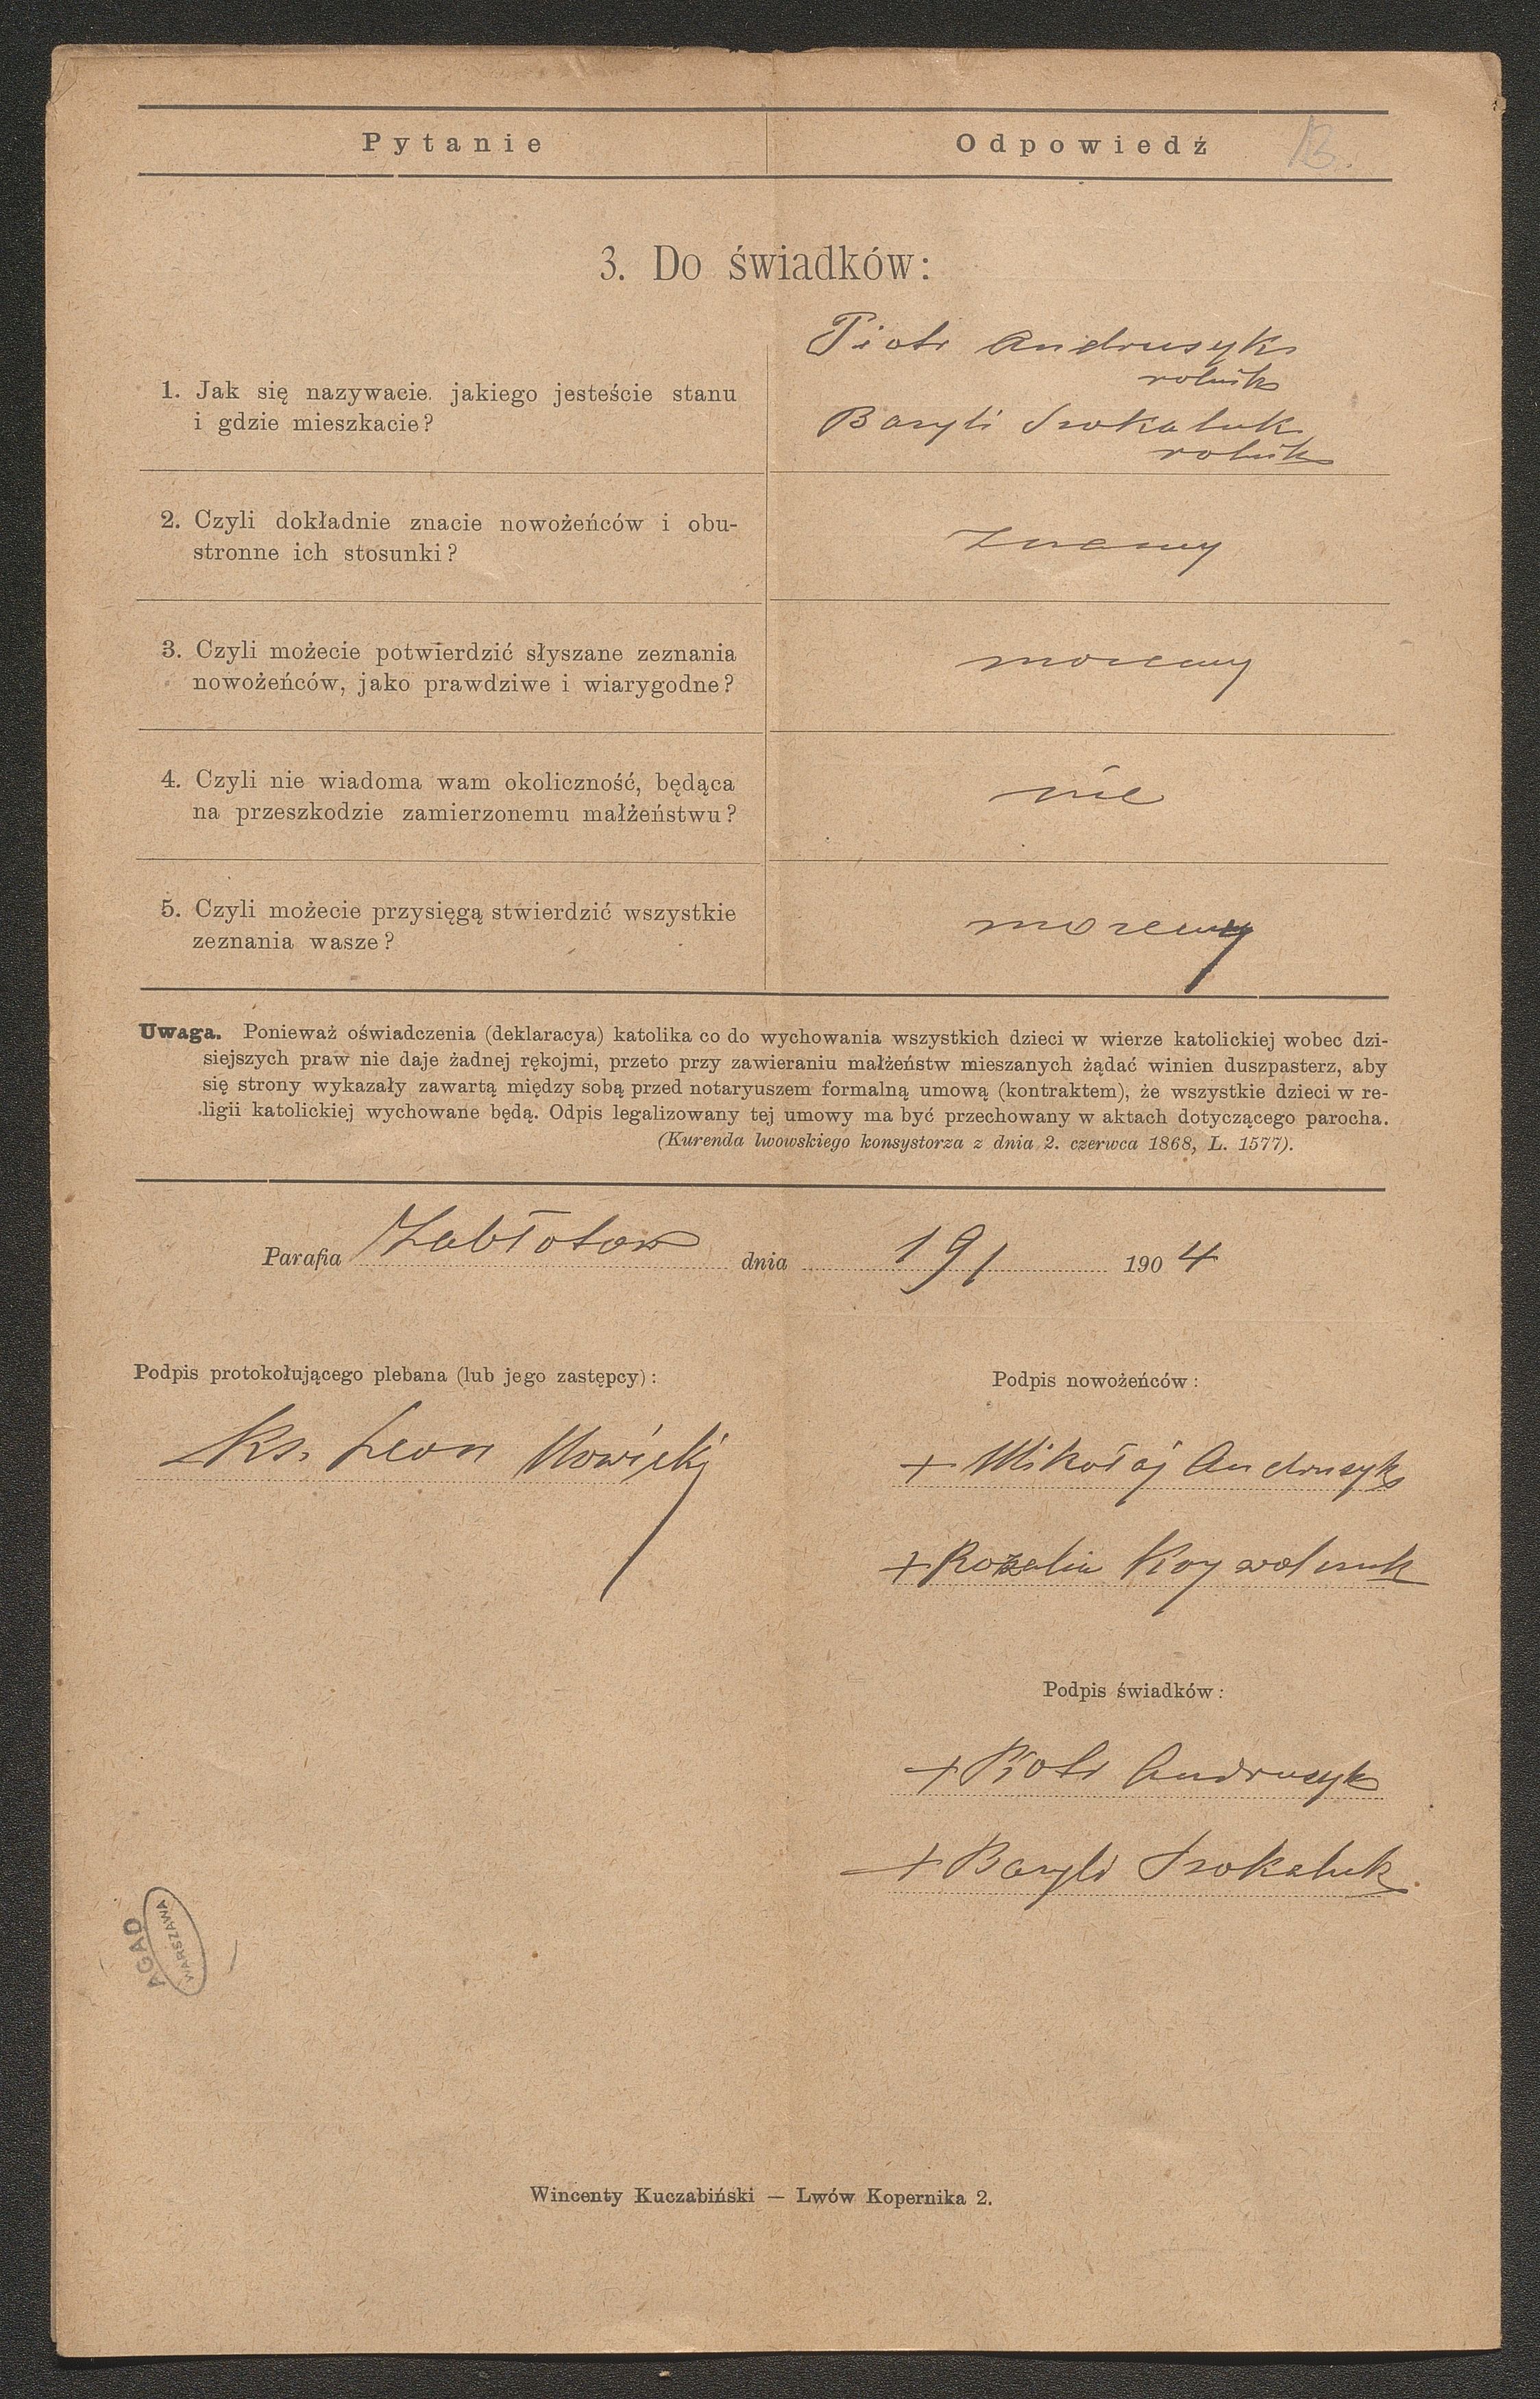 Pytanie Odpowiedź
3. Do świadków:
1. Jak się nazywacie. jakiego jesteście stanu
i gdzie mieszkacie?
Piotr Andrusyk
rolnik
Bazyli
rolnik
2. Czyli dokładnie znacie nowożeńców i obu-
stronne ich stosunki?
Znamy
3. Czyli możecie potwierdzić słyszane zeznania
nowożeńców, jako prawdziwe i wiarygodne?
możemy
4. Czyli nie wiadoma wam okoliczność, będąca
na przeszkodzie zamierzonemu małżeństwu?
nie
5. Czyli możecie przysięgą stwierdzić wszystkie
zeznania wasze?
możemy
Uwaga. Ponieważ oświadczenia (deklaracya) katolika co do wychowania wszystkich dzieci w wierze katolickiej wobec dzi-
siejszych praw nie daje żadnej rękojmi, przeto przy zawieraniu małżeństw mieszanych żądać winien duszpasterz, aby
się strony wykazały zawartą między sobą przed notaryuszem formalną umową (kontraktem), że wszystkie dzieci w re-
ligii katolickiej wychowane będą. Odpis legalizowany tej umowy ma być przechowany w aktach dotyczącego parocha.
(Kurenda lwowskiego konsystorza z dnia 2. czerwca 1868, L. 1577).
Parafia Zabłotow dnia 19/ 1904
Podpis protokołującego plebana (lub jego zastępcy):
Ks. Leon Nowicki
Podpis nowożeńców:
+ Mikołaj Andrusyk
+ Rozalia
Podpis świadków:
+ Piotr Andrusyk
+ Bazyli
AGAD
WARSZAWA
Wincenty Kuczabiński — Lwów Kopernika 2.